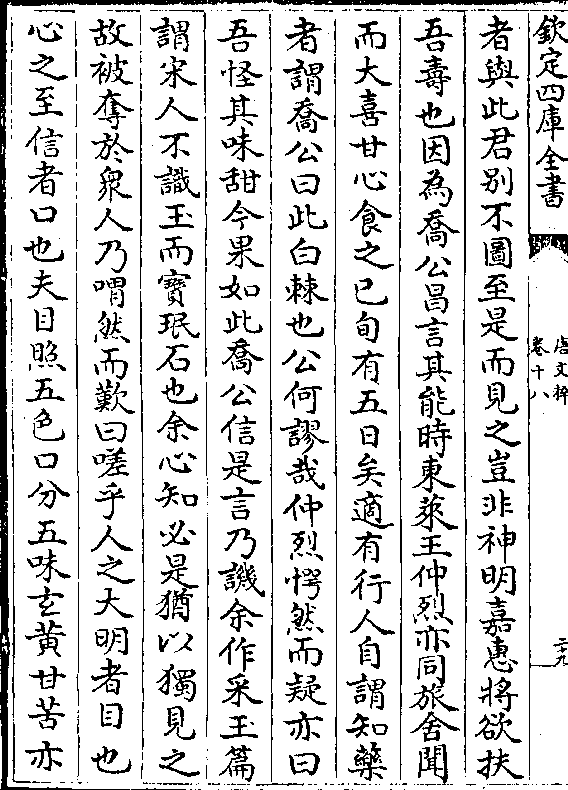 欽定四庫全書
唐文粹
卷十八
二十九
者與此君别不圖至是而見之豈非神明嘉惠將欲扶
吾壽也因為喬公昌言其能時東萊王仲烈亦同旅舍聞
而大喜甘心食之已旬有五日矣適有行人自謂知藥
者謂喬公曰此白棘也公何謬哉仲烈愕然而疑亦曰
吾怪其味甜今果如此喬公信是言乃譏余作采玉篇
謂宋人不識玉而寳珉石也余心知必是猶以獨見之
故被奪於衆人乃喟然而歎曰嗟乎人之大明者目也
心之至信者口也夫目照五色口分五味玄黄甘苦亦